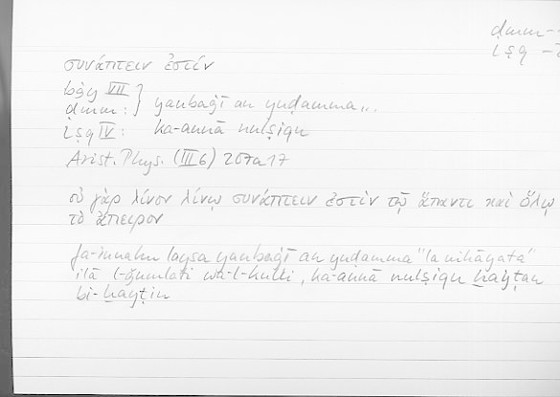 ḍmm-
lṣq -
συνάπτειν ἐστίν
bġy VII
ḍmm : } yanbaġī an yuḍamma...
lṣq IV : ka-annā nulṣiqu
Arist. Phys. (III 6) 207a17
οὐ γὰρ λίνον λίνῳ συνάπτειν ἐστὶν τῷ ἅπαντι καὶ ὅλῳ
τὸ ἄπειρον
fa-innahu laysa yanbaġī an yuḍamma "la nihāyata"
ilā l-ǧumlati wa-l-kulli, ka-annā nulṣiqu ḫayṭan
bi-ḫayṭin